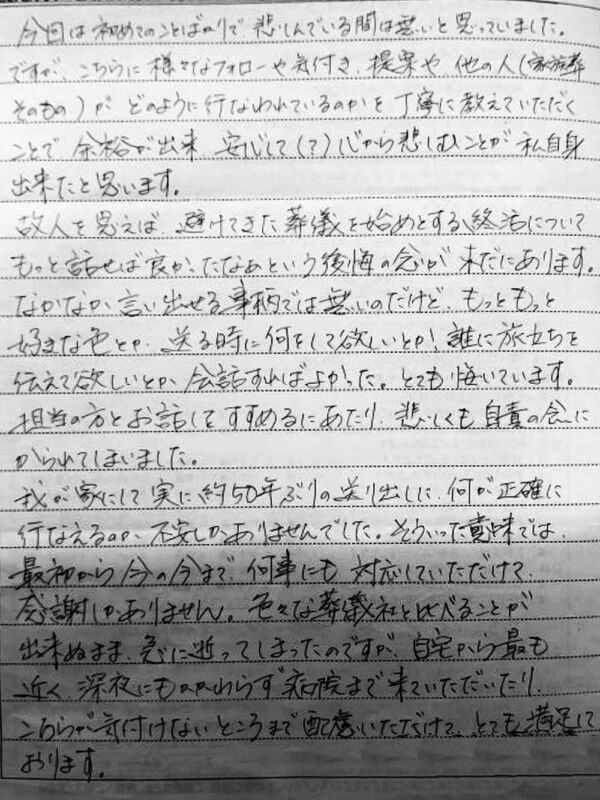 今回は初めてのことばかりで悲しんでいる間は無いと思っていました。
ですが、こちらに様々なフォローや気付き、提案や、他の人(家族葬
そのもの)がどのように行なわれているのかを丁寧に教えていただく
ことで余裕が出来、安心して(?)心から悲しむことが私自身
出来たと思います。
故人を思えば、避けてきた葬儀を始めとする、終活について
もっと話せば良かったなぁという後悔の念が未だにあります。
なかなか言い出せる事柄では無いのだけど、もっともっと
好きな色とか、送る時に何をして欲しいとか、誰に旅立ちを
伝えて欲しいとか、会話すればよかった。とても悔いています。
担当の方とお話しをすすめるにあたり、悲しくも自責の念に
かられてしまいました。
我が家にして実に約50年ぶりの送り出しに、何が正確に
行なえるのか、不安しかありませんでした。そういった意味では、
最初から今の今まで、何事にも対応していただけて、
感謝しかありません。色々な葬儀社と比べることが
出来ぬまま、急に逝ってしまったのですが、自宅から最も
近く、深夜にもかかわらず病院まで来ていただいたり、
こちらが気付けないところまで配慮いただけて、とても満足して
おります。